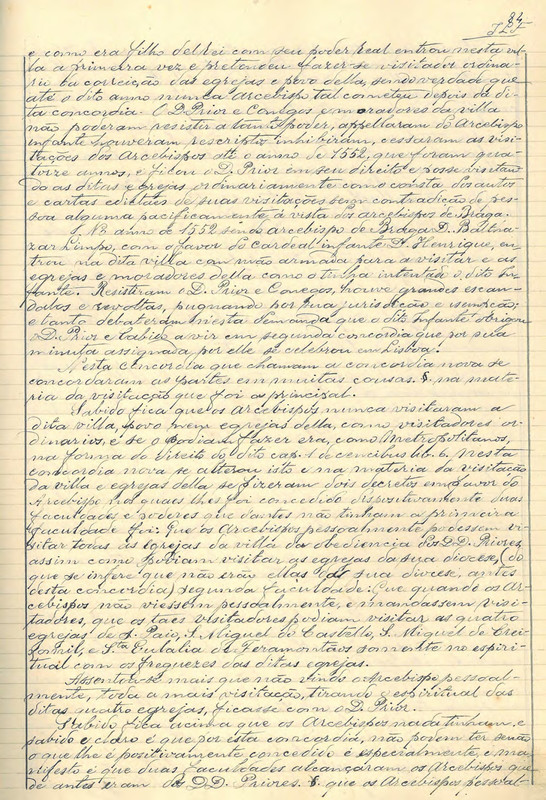 84
e como era filho del Rei com seu poder real entrou nesta vil-
la a primeira vez e pretendeu fazer-se visitador ordina-
rio da correição das egrejas e povo della, sendo verdade que
até o dito anno nunca Arcebispo tal cometeu depois da di-
ta concordia. O D. Prior e Conegos e moradores da villa
não poderam resistir a tanto poder, appellaram do Arcebispo
Infante houveram rescripto inhibiram, cessaram as visi-
tações dos Arcebispos até o anno de 1552, que foram qua-
torze annos, e ficou o D. Prior em seu direito e posse visitan-
do as ditas egrejas ordinariamente como consta dos autos
e cartas editaes de suas visitações sem contradição de pes-
soa alguma pacificamente á vista dos arcebispos de Braga.
No anno de 1552 sendo arcebispo de Braga D. Baltha-
zar Limpo, com o favor do Cardeal infante D. Henrique, en-
trou na dita villa com mão armada para a visitar e as
egrejas e moradores della como o tinha intentado o dito In-
fante. Resistiram o D. Prior e Conegos, houve grandes escan-
dalos e revoltas, pugnando por sua jurisdicção e isempção;
e tanto debateram nesta demanda que o dito Infante obrigou
o D. Prior e Cabido a vir em segunda concordia que por sua
minuta assignada por elle se celebrou em Lisboa.
Nesta concordia que chamam a concordia nova se
concordaram as partes em muitas cousas. §. na mate-
ria da visitação que foi a principal.
Sabido fica que os Arcebispos nunca visitaram a
dita villa, povo nem egrejas della, como visitadores or-
dinarios, e se o podiam fazer era, como Metropolitanos,
na forma do direito do dito cap. 1 de censibus lib. 6. Nesta
concordia nova se alterou isto e na materia da visitação
da villa e egrejas della se fizeram dois decretos em favor do
Arcebispo nos quaes lhes foi concedido dispositivamente duas
faculdades e poderes que dantes não tinham a primeira
faculdade foi: Que os Arcebispos pessoalmente podessem vi-
sitar todas as Egrejas da villa da obediencia dos DD. Priores,
assim como podiam visitar as egrejas da sua diocese, (do
que se infere que não erão ellas da sua diocese, antes
desta concordia) segunda faculdade: Que quando os Ar-
cebispos não viessem pessoalmente, e mandassem visi-
tadores, que os taes visitadores podiam visitar as quatro
egrejas de S. Paio, S. Miguel do Castello, S. Miguel de Crei-
xomil, e Sta Eulalia de Fermentões somente no espiri-
tual com os freguezes das ditas egrejas.
Assentou-se mais que não vindo o Arcebispo pessoal-
mente, toda a mais visitação, tirando o espiritual das
ditas quatro egrejas, ficasse com o D. Prior.
Sabido fica acima que os Arcebispos nada tinham, e
sabido e claro é que por esta concordia, não podem ter senão
o que lhe é positivamente concedido e especialmente, e ma-
nifesto é que duas faculdades alcançaram os Arcebispos que
de antes eram dos DD. Priores. §. que os Arcebispos pessoal-